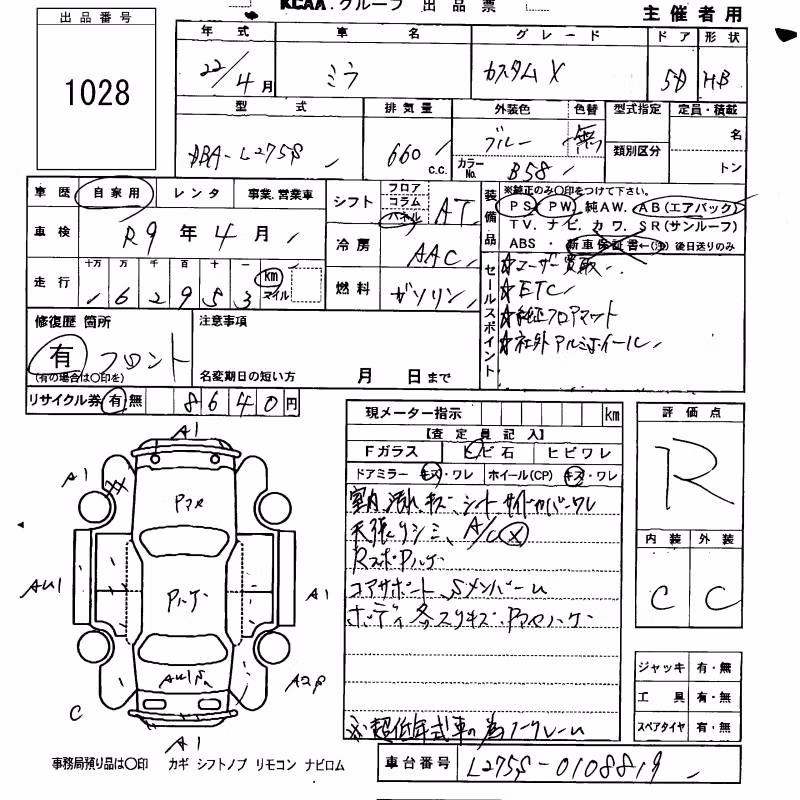 KCAA.グループ 出品票
主催者用
出品番号
1028
年式 車名 グレード ドア 形状
22/4月 ミラ カスタムX 5D HB
型式 排気量 外装色 色替 型式指定 定員・積載
DBA-L275S 660 c.c. ブルー 無 名
カラーNo. B58 類別区分 トン
車歴 自家用 レンタ 事業.営業車
シフト フロア コラム パネル AT
車検 R9年4月
冷房 AAC
走行 十万 万 千 百 十 一
62953 km マイル
燃料 ガソリン
装備品
※純正のみ○印をつけて下さい。
PS PW 純AW. AB(エアバック)
TV. ナビ. カワ. SR(サンルーフ)
ABS・新車保証書←(注)後日送りのみ
セールスポイント
☆ユーザー買取
☆ETC
☆純正フロアマット
☆社外アルミホイール
修復歴 箇所 注意事項
有 フロント
(有の場合は○印を)
名変期日の短い方 月 日まで
リサイクル券 有 無 8640円
現メーター指示 km
【査定員記入】
Fガラス ヒビ石 ヒビワレ
ドアミラー キズ・ワレ ホイール(CP) キズ・ワレ
室内汚れキズ、シートサイドカバーワレ
天張リシミ、A/C(X)
RスポPハゲ
コアサポート、Sメンバーム
ボディ各スリキズ・PアセハゲPハゲ
※超低年式車の為ノークレーム
評価点
R
内装 外装
C C
ジャッキ 有・無
工具 有・無
スペアタイヤ 有・無
A1
A1
Pアセ
AU1
Pハゲ
A1
A2S
C
A1
事務局預り品は○印 カギ シフトノブ リモコン ナビロム
車台番号 L275S-0108819